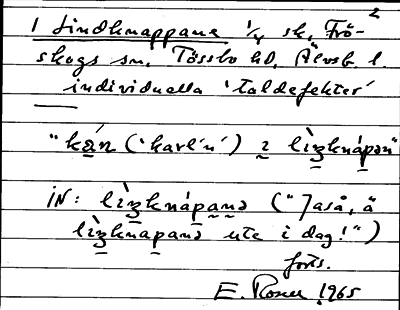 2
1 Lindknappana 1/4 sk, Frö-
skogs sn, Tössbo hd, Älvsb. l.
individuella 'taldefekter'
"kạ́n ('karl'n') i lìzknápan"
IN: lìzknápanə ("Jaså, ä
lìzknapanə ute i dag!")
forts.
E. Rosen 1965